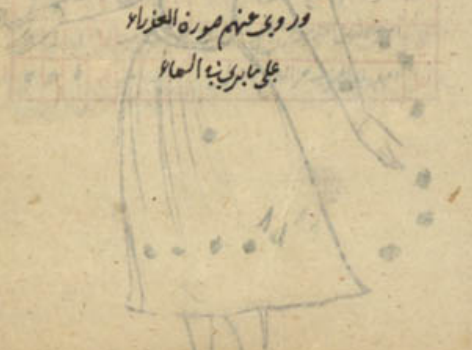 وروى عنهم صورة العذراء
على ما يرى في السماء